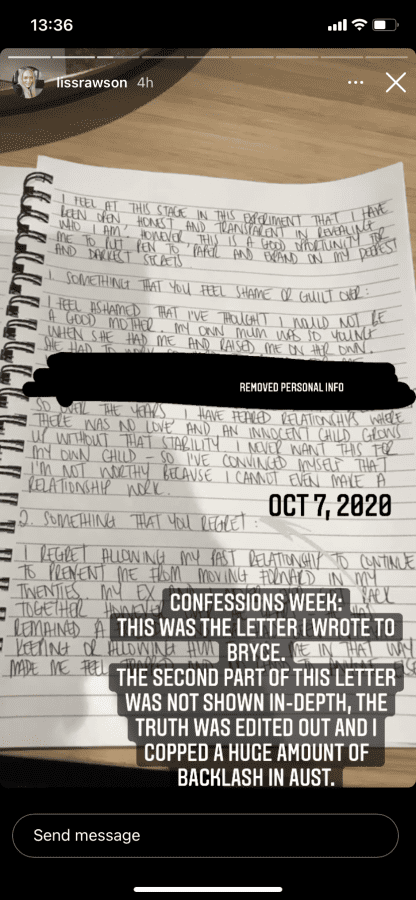 13:36
lissrawson 4h
I FEEL AT THIS STAGE IN THIS EXPERIMENT THAT I HAVE
BEEN OPEN, HONEST AND TRANSPARENT IN REVEALING
WHO I AM, HOWEVER, THIS IS A GOOD OPPORTUNITY FOR
ME TO PUT PEN TO PAPER AND EXPAND ON MY DEEPEST
AND DARKEST SECRETS.
1. SOMETHING THAT YOU FEEL SHAME OR GUILT OVER:
I FEEL ASHAMED THAT I'VE THOUGHT I WOULD NOT BE
A GOOD MOTHER. MY OWN MUM WAS SO YOUNG
WHEN SHE HAD ME AND RAISED ME ON HER OWN.
SHE HAD TO
REMOVED PERSONAL INFO
SO OVER THE YEARS I HAVE FEARED RELATIONSHIPS WHERE
THERE WAS NO LOVE AND AN INNOCENT CHILD GROWS
UP WITHOUT THAT STABILITY. I NEVER WANT THIS FOR
MY OWN CHILD - SO I'VE CONVINCED MYSELF THAT
I'M NOT WORTHY BECAUSE I CANNOT EVEN MAKE A
RELATIONSHIP WORK.
OCT 7, 2020
2. SOMETHING THAT YOU REGRET:
I REGRET ALLOWING MY PAST RELATIONSHIP TO CONTINUE
TO PREVENT ME FROM MOVING FORWARD IN MY
TWENTIES. MY EX BACK
TOGETHER
REMAINED A
KEEPING OR ALLOWING HIM ME IN THAT WAY
MADE ME FEEL
CONFESSIONS WEEK:
THIS WAS THE LETTER I WROTE TO
BRYCE.
THE SECOND PART OF THIS LETTER
WAS NOT SHOWN IN-DEPTH, THE
TRUTH WAS EDITED OUT AND I
COPPED A HUGE AMOUNT OF
BACKLASH IN AUST.
Send message